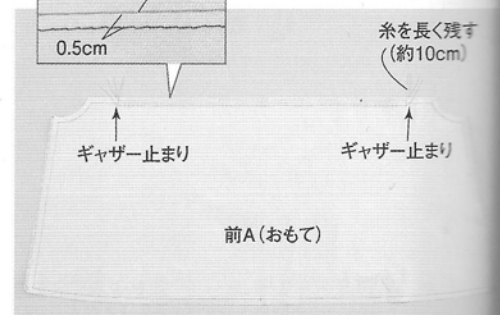 0.5cm
糸を長く残す
(約10cm)
ギャザー止まり
ギャザー止まり
前A(おもて)